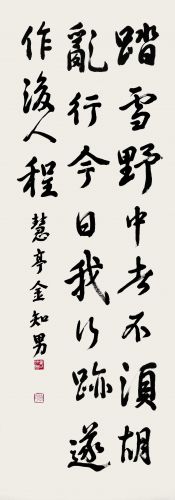 踏雪野中去不須胡
亂行今日我行跡遂
作後人程 慧亭金知男